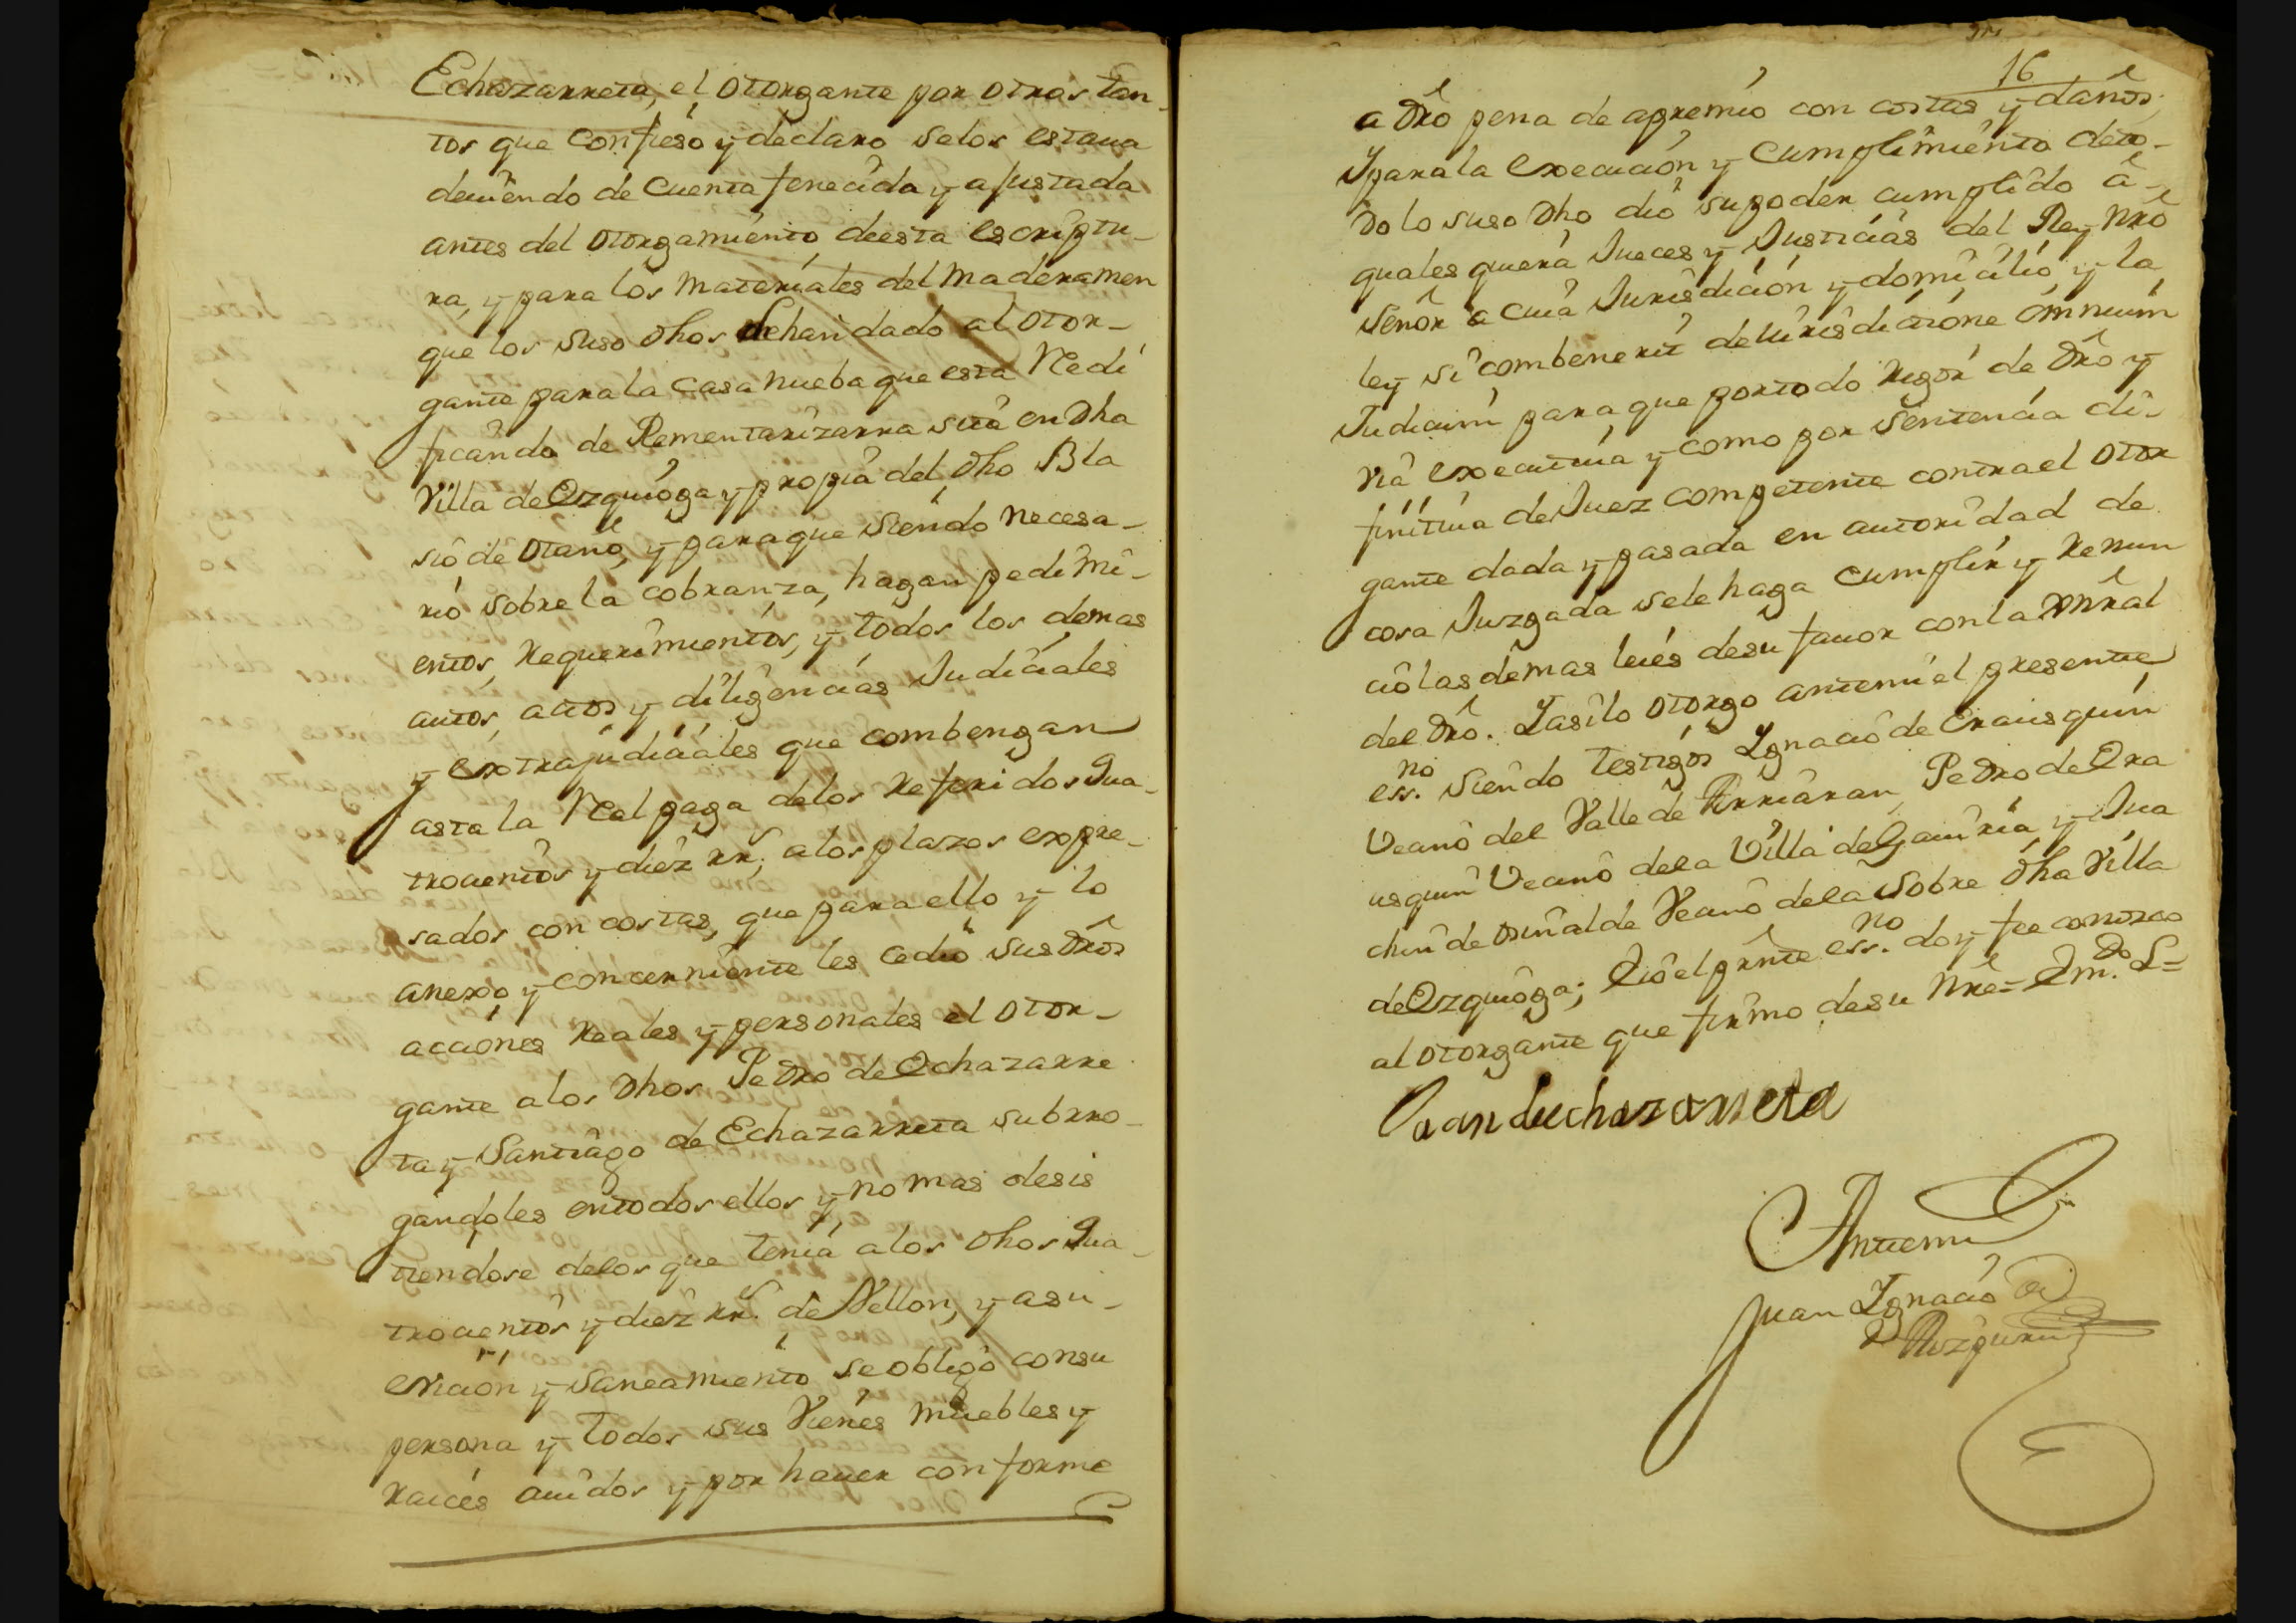 Echazarreta, el otorgante por otros tan-
tos que confieso y declaro selos estaua
deuiendo de cuenta fenecida y ajustada
antes del otorgamiento deesta escriptu-
ra, y para los materiales del maderamen
que los suso dhos lehan dado al otor-
gante parala Casa nueba que esta Redi
ficando de Rementarizarra sita en dha
Villa de Ozquioga y propia del dho Bla
sio de Otaño, y paraque siendo necesa-
rio sobre la cobranza, hagan pedimi-
entos, requerimientos, y todos los demas
autos, actos y diligencias Judiciales
y extrajudiciales que combengan
asta la Real paga delos referidos qua-
trocientos y diez rrs. alos plazos expre-
sados con costas, que para ello y lo
anexo y concerniente les cedio sus dros
acciones reales y personales el otor-
gante alos dhos Pedro de Echazarre
ta y Santiago de Echazarreta subrro-
gandoles entodos ellos y no mas desis
tiendose delos que tenia alos dhos qua-
trocientos y diez rrs. de Vellon, y asu-
eviccion y saneamiento se obligo consu
persona y todos sus Vienes muebles y
raices auidos y por hauer conforme
16
a dro pena de apremio con costas y daños
Y parala execucion y cumplimiento deto-
do lo suso dho dio su poder cumplido a
quales quiera Jueces y Justicias del Rey nro
Señor a cuia Jurisdicion y domicilio y la
ley si combenerit de Iurisdictione omnium
Judicum para que portodo rigor de dro y
via executiua y como por sentencia di-
finitiua de Juez competente contra el otor
gante dada y pasada en autoridad de
cosa Juzgada sele haga cumplir y renun
cio las demas leies desu fauor con la gnral
del dro. Y asi lo otorgo antemi el presente
essno. siendo testigos Ygnacio de Erausquin
Vecino del Valle de Arriaran, Pedro de Era
usquin Vecino dela Villa de Gauiria y Jua
chin de Osinalde Vecino dela sobre dha Villa
de Ozquioga; e yo el prnte essno. doy fee conozco
al otorgante que firmo desu nre= Em.do L=
Juan de echazarreta
Antemi
Juan Ygnacio de
Aizpuru